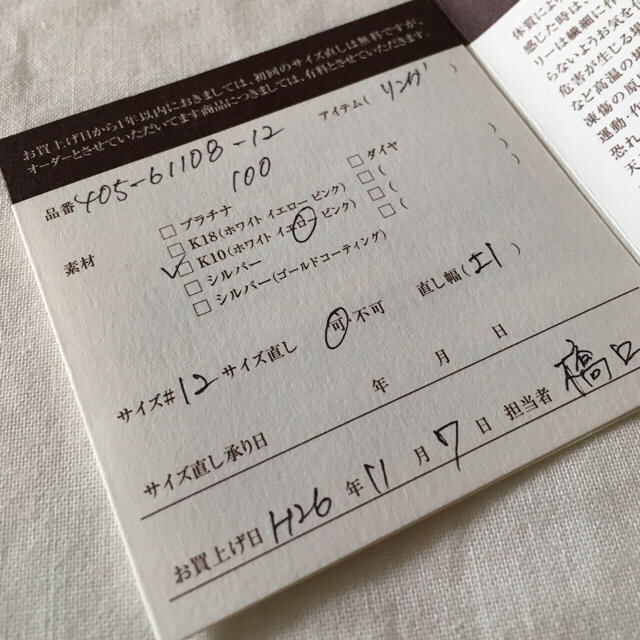 お買上げ日から1年以内におきましては、初回のサイズ直しは無料ですが、
オーダーとさせていただいてます商品につきましては、有料とさせていただきます。
品番 405-61108-12 アイテム( リング )
100
素材 □ プラチナ □ ダイヤ
□ K18(ホワイト イエロー ピンク) □( )
✓□ K10(ホワイト イエロー ピンク) □( )
□ シルバー
□ シルバー(ゴールドコーティング)
サイズ# 12 サイズ直し 可・不可 直し幅( ±1 )
サイズ直し承り日 年 月 日
お買上げ日 H26 年 11 月 7 日 担当者 橋口
体質によ
感じた時は、
リーは繊細に作
らないようお気を
危害が生じる場
など高温の
凍傷の原
運動・
恐れ